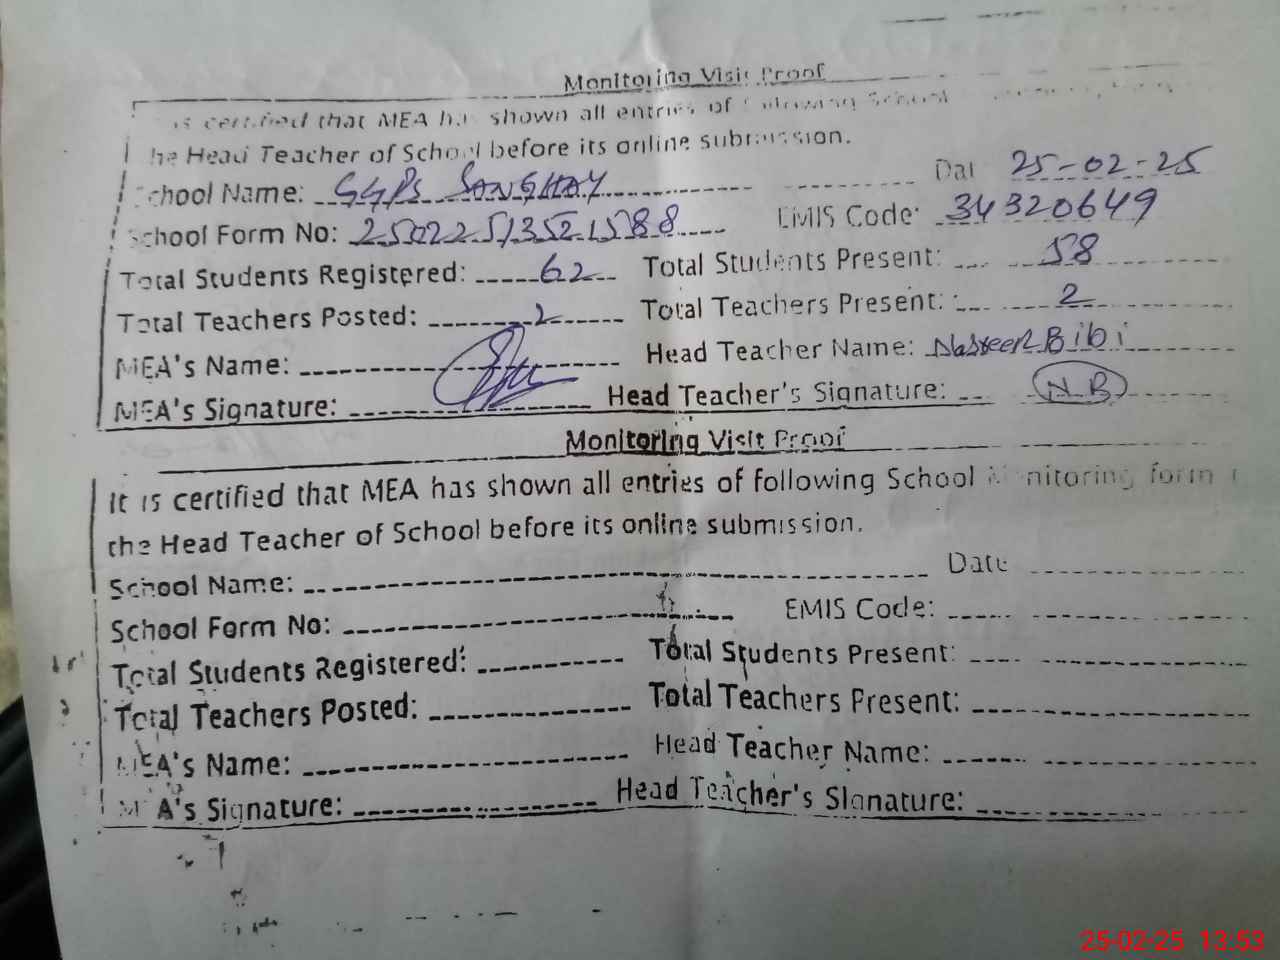 Monitoring Visit Proof
is certified that MEA has shown all entries of following School
the Head Teacher of School before its online submission.
School Name: GGPS SANGHAY Dat 25-02-25
School Form No: 25022513521588 EMIS Code: 34320649
Total Students Registered: 62 Total Students Present: 58
Total Teachers Posted: 2 Total Teachers Present: 2
MEA's Name: Head Teacher Name: Nasreen Bibi
MEA's Signature: Head Teacher's Signature: N.B
Monitoring Visit Proof
It is certified that MEA has shown all entries of following School Monitoring form
the Head Teacher of School before its online submission.
School Name: Date
School Form No: EMIS Code:
Total Students Registered: Total Students Present:
Total Teachers Posted: Total Teachers Present:
MEA's Name: Head Teacher Name:
MEA's Signature: Head Teacher's Signature:
25-02-25 13:53